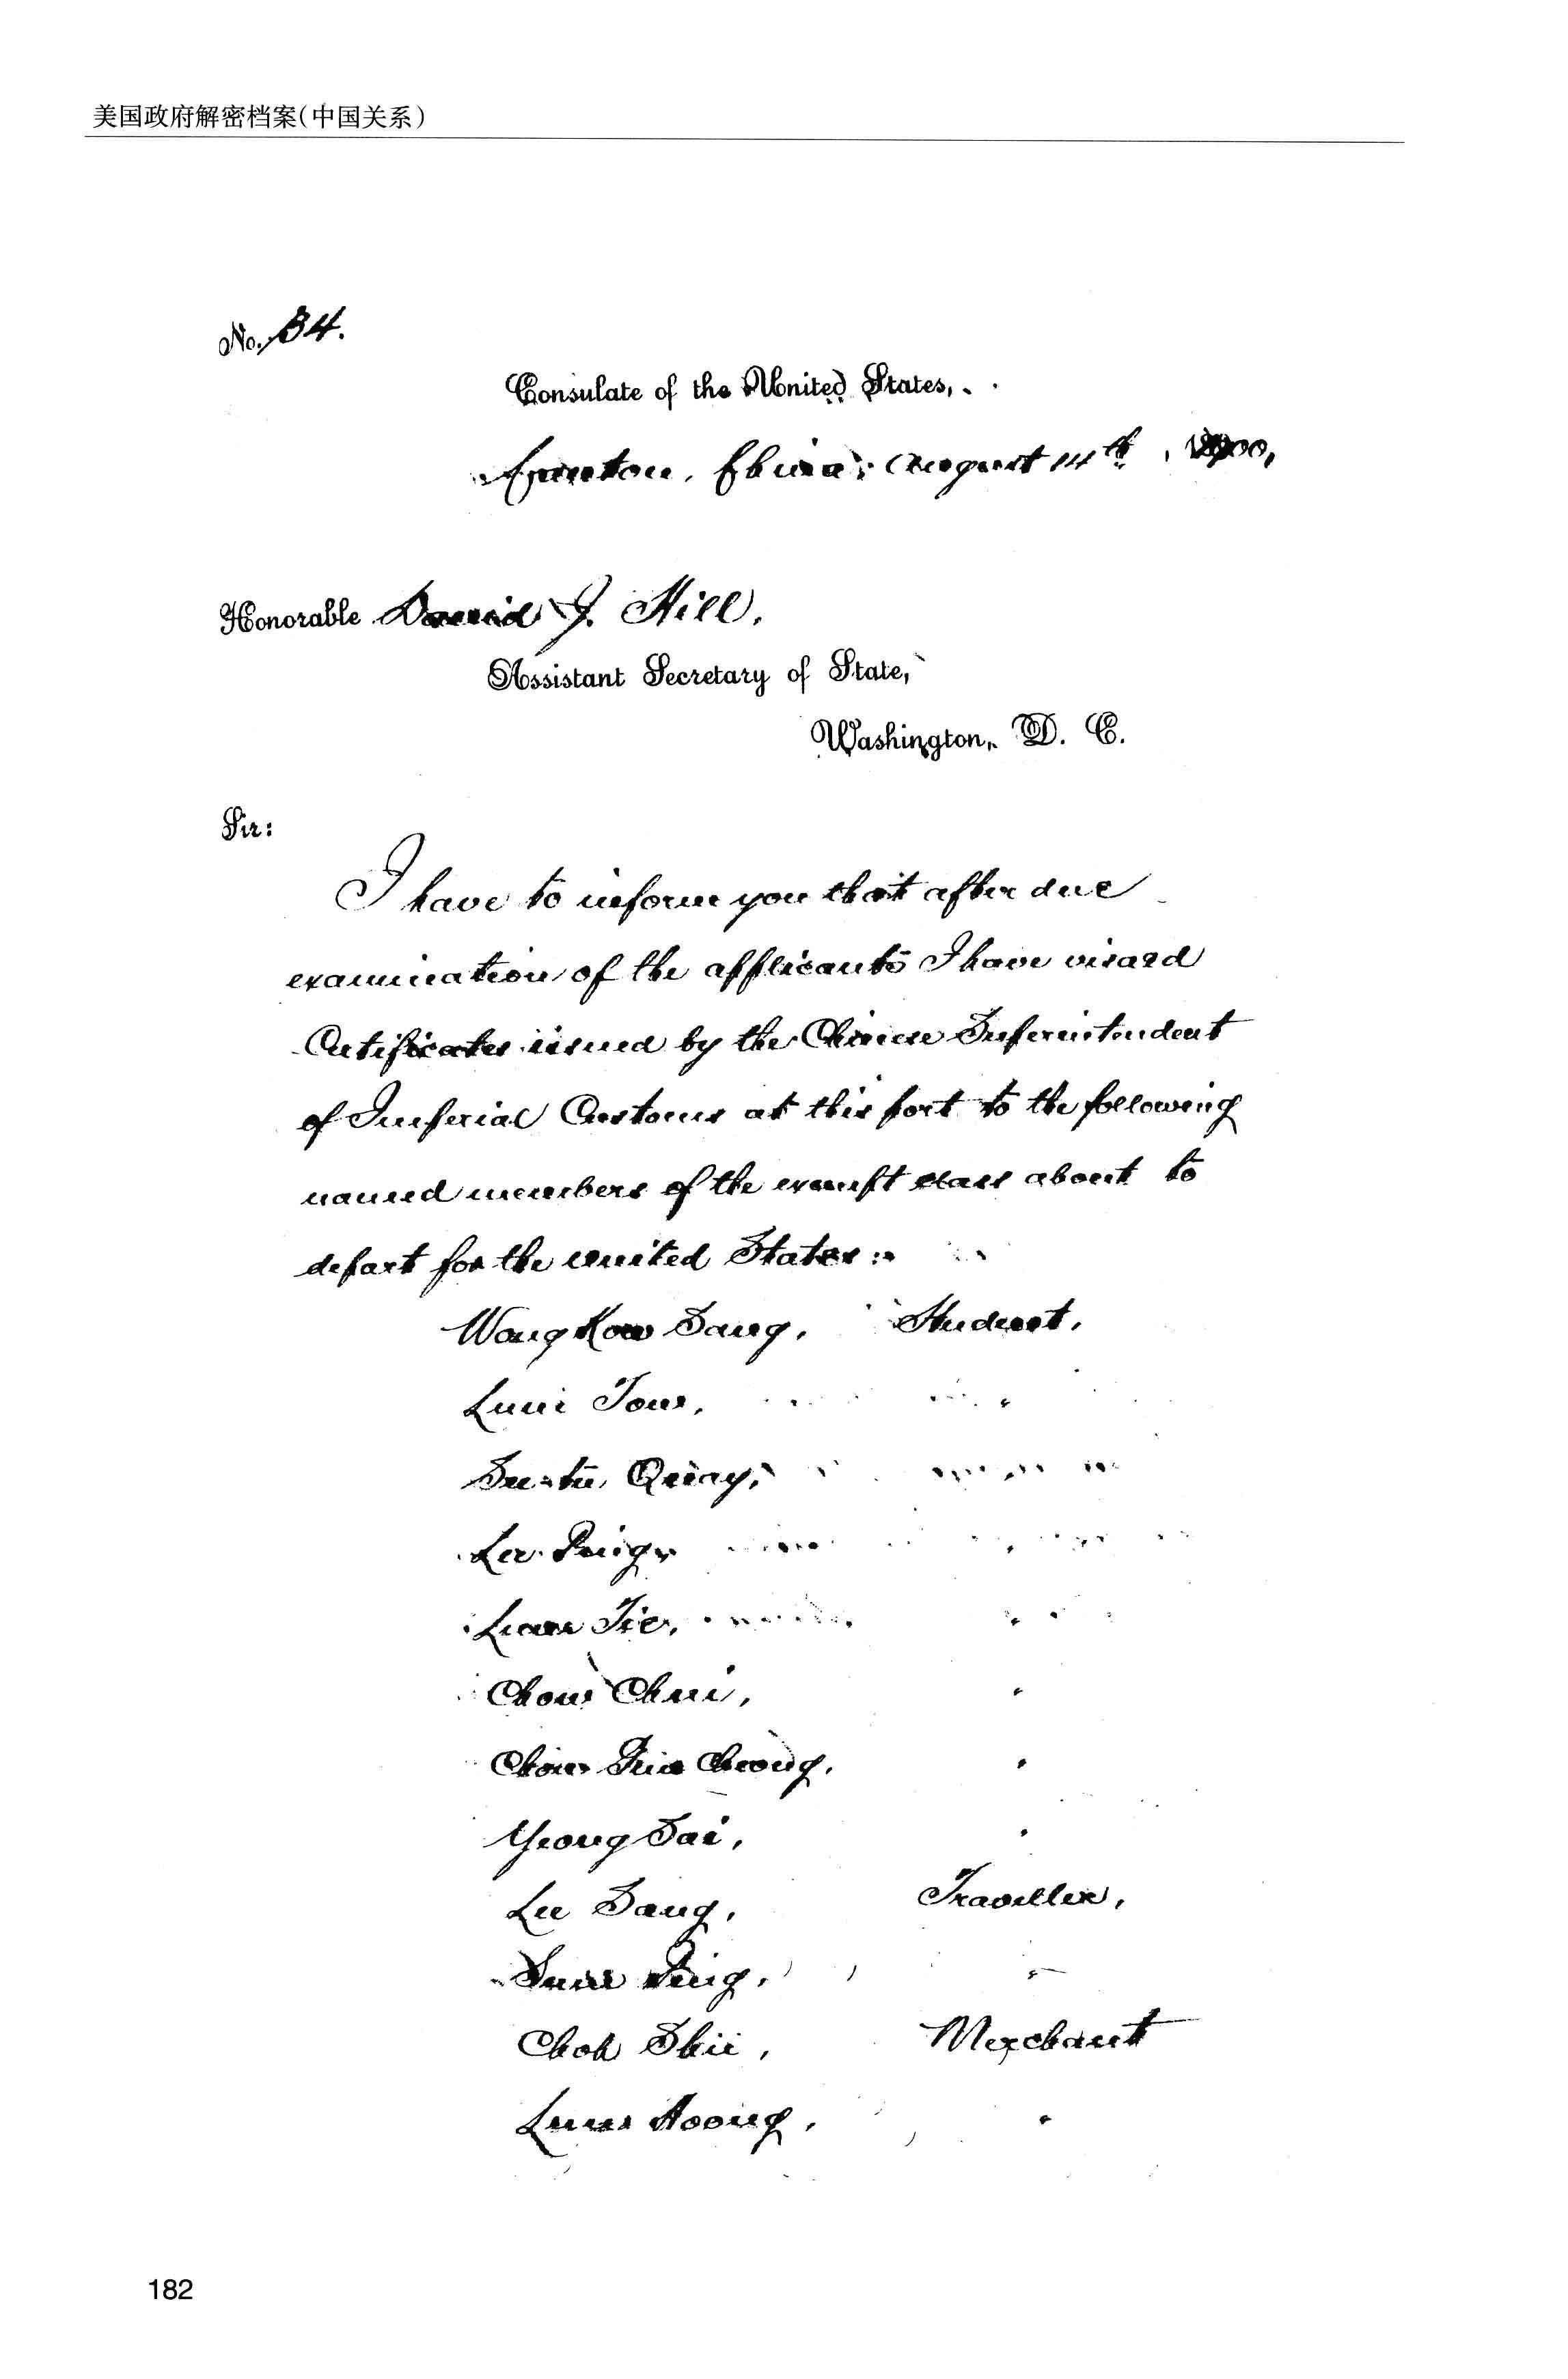 美国政府解密档案(中国关系)
No. 34.
Consulate of the United States,
Canton, China, August 14th, 1900,
Honorable David J. Hill,
Assistant Secretary of State,
Washington, D. C.
Sir:
I have to inform you that after due
examination of the applicants I have visaed
Certificates issued by the Chinese Superintendent
of Imperial Customs at this port to the following
named members of the exempt class about to
depart for the United States:
Wong Kow Sang, Student,
Tow, "
Quay,
"
"
Chow Chui, "
Chow Cheong, "
Yeong Sai, "
Lee Sang, Traveller,
"
Choh Shii, Merchant
Lum Hoong, "
182